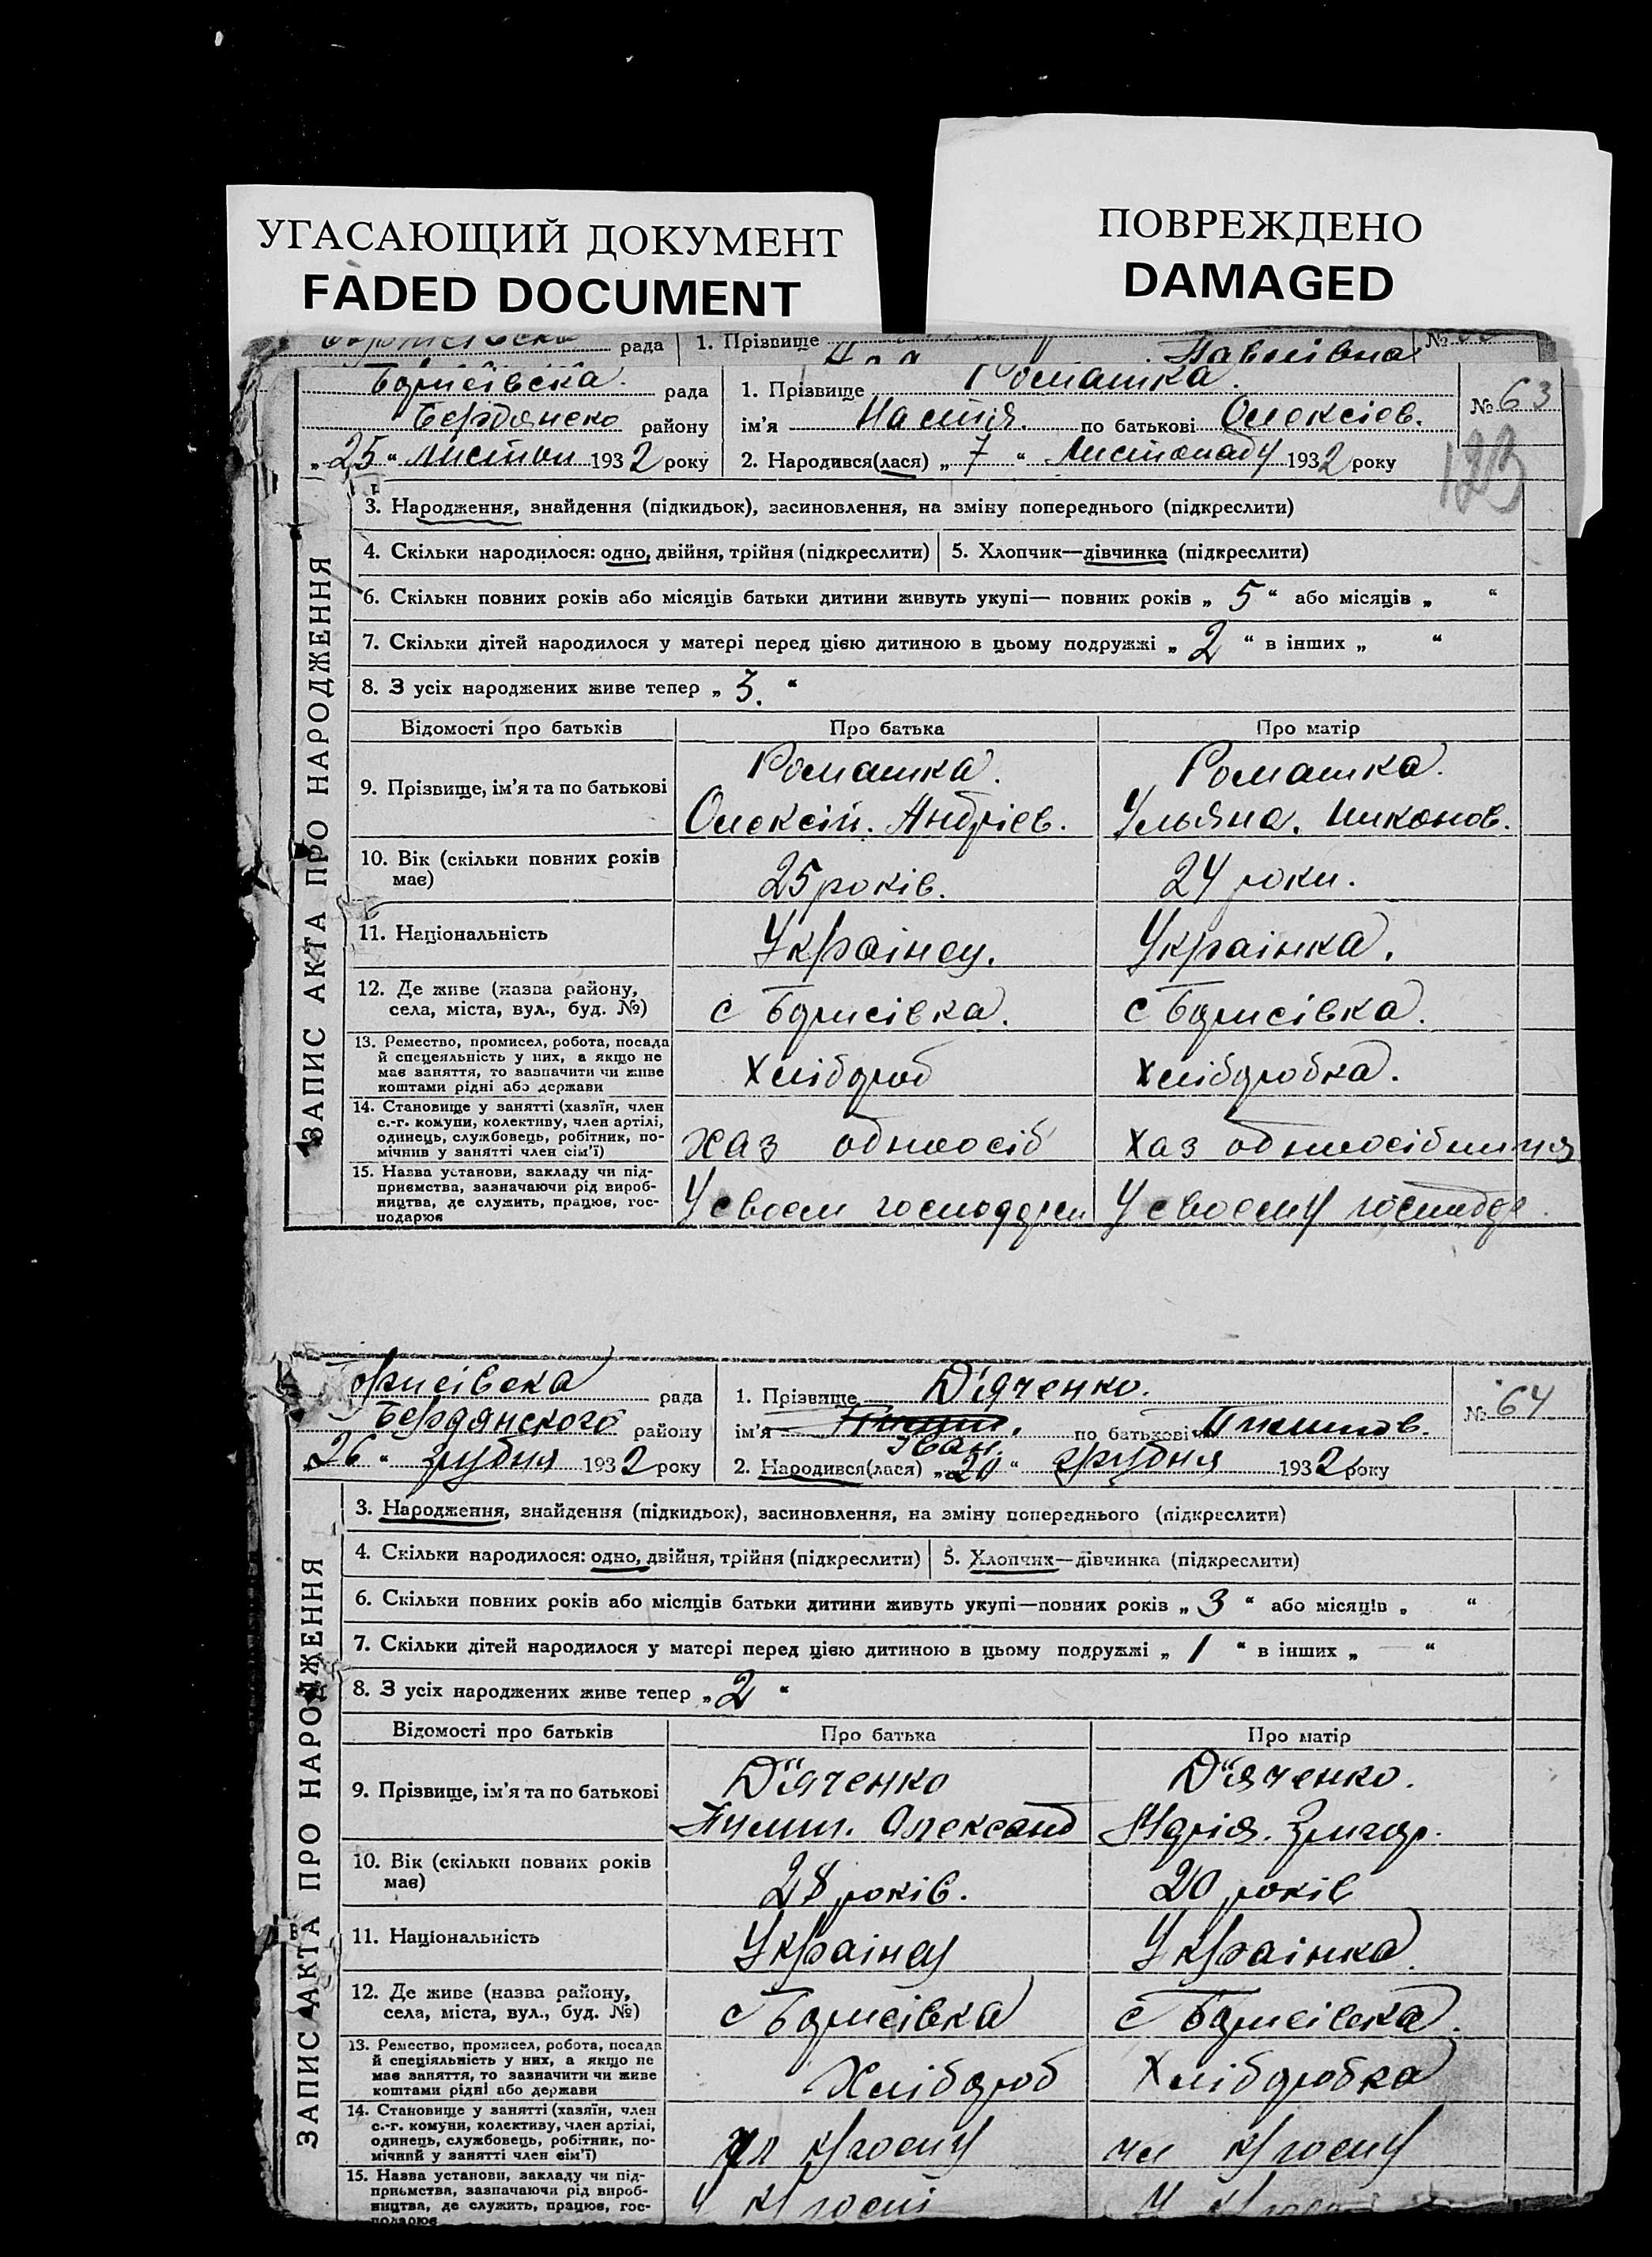 УГАСАЮЩИЙ ДОКУМЕНТ
FADED DOCUMENT
ПОВРЕЖДЕНО
DAMAGED
рада 1. Прізвище Павлівна №
Борисівска рада 1. Прізвище Ромашка. № 63
Бердянско району ім'я Настія. по батькові Олексієв.
„25“ листоп 1932 року 2. Народився(лася) „7“ Листопаду 1932 року
123
3. Народження, знайдення (підкидьок), засиновлення, на зміну попереднього (підкреслити)
4. Скільки народилося: одно, двійня, трійня (підкреслити) 5. Хлопчик—дівчинка (підкреслити)
6. Скільки повних років або місяців батьки дитини живуть укупі— повних років „5“ або місяців „ “
7. Скільки дітей народилося у матері перед цією дитиною в цьому подружжі „2“ в інших „ “
8. З усіх народжених живе тепер „3.“
Відомості про батьків Про батька Про матір
9. Прізвище, ім'я та по батькові
Ромашка. Ромашка.
Олексій. Андрієв. Ульяна. Никонов.
10. Вік (скільки повних років має) 25 років. 24 роки.
11. Національність Українец. Українка.
12. Де живе (назва району, села, міста, вул., буд. №) с Борисівка. с Борисівка.
13. Ремество, промисел, робота, посада
й спецеяльність у них, а якщо не
має заняття, то зазначити чи живе
коштами рідні або держави
Хлібороб Хліборобка.
14. Становище у занятті (хазяїн, член
с.-г. комуни, колективу, член артілі,
одинець, службовець, робітник, по-
мічнив у занятті член сім'ї)
хаз одноосіб хаз одноосібниця
15. Назва установи, закладу чи під-
приємства, зазначаючи рід вироб-
ництва, де служить, працює, гос-
подарює
У своєм господарси У своєму господар
ЗАПИС АКТА ПРО НАРОДЖЕННЯ
Борисівска рада 1. Прізвище Д'яченко. № 64
Бердянского району ім'я Іван. по батькові Пилипов.
„26“ грудня 1932 року 2. Народився(лася) „20“ грудня 1932 року
3. Народження, знайдення (підкидьок), засиновлення, на зміну попереднього (підкреслити)
4. Скільки народилося: одно, двійня, трійня (підкреслити) 5. Хлопчик—дівчинка (підкреслити)
6. Скільки повних років або місяців батьки дитини живуть укупі—повних років „3“ або місяців „ “
7. Скільки дітей народилося у матері перед цією дитиною в цьому подружжі „1“ в інших „—“
8. З усіх народжених живе тепер „2“
Відомості про батьків Про батька Про матір
9. Прізвище, ім'я та по батькові
Д"яченко Д"яченко.
Пилип. Олександ Марія. Григор.
10. Вік (скільки повних років має) 28 років. 20 років
11. Національність Українец Українка
12. Де живе (назва району, села, міста, вул., буд. №) с Борисівка с Борисівска
13. Ремество, промисел, робота, посада
й спеціяльність у них, а якщо не
має заняття, то зазначити чи живе
коштами рідні або держави
Хлібороб Хліборобка
14. Становище у занятті (хазяїн, член
с.-г. комуни, колективу, член артілі,
одинець, службовець, робітник, по-
мічний у занятті член сім'ї)
чл к/госпу чл к/госпу
15. Назва установи, закладу чи під-
приємства, зазначаючи рід вироб-
ництва, де служить, працює, гос-
подарює
У к/госпі У к/госп
ЗАПИС АКТА ПРО НАРОДЖЕННЯ